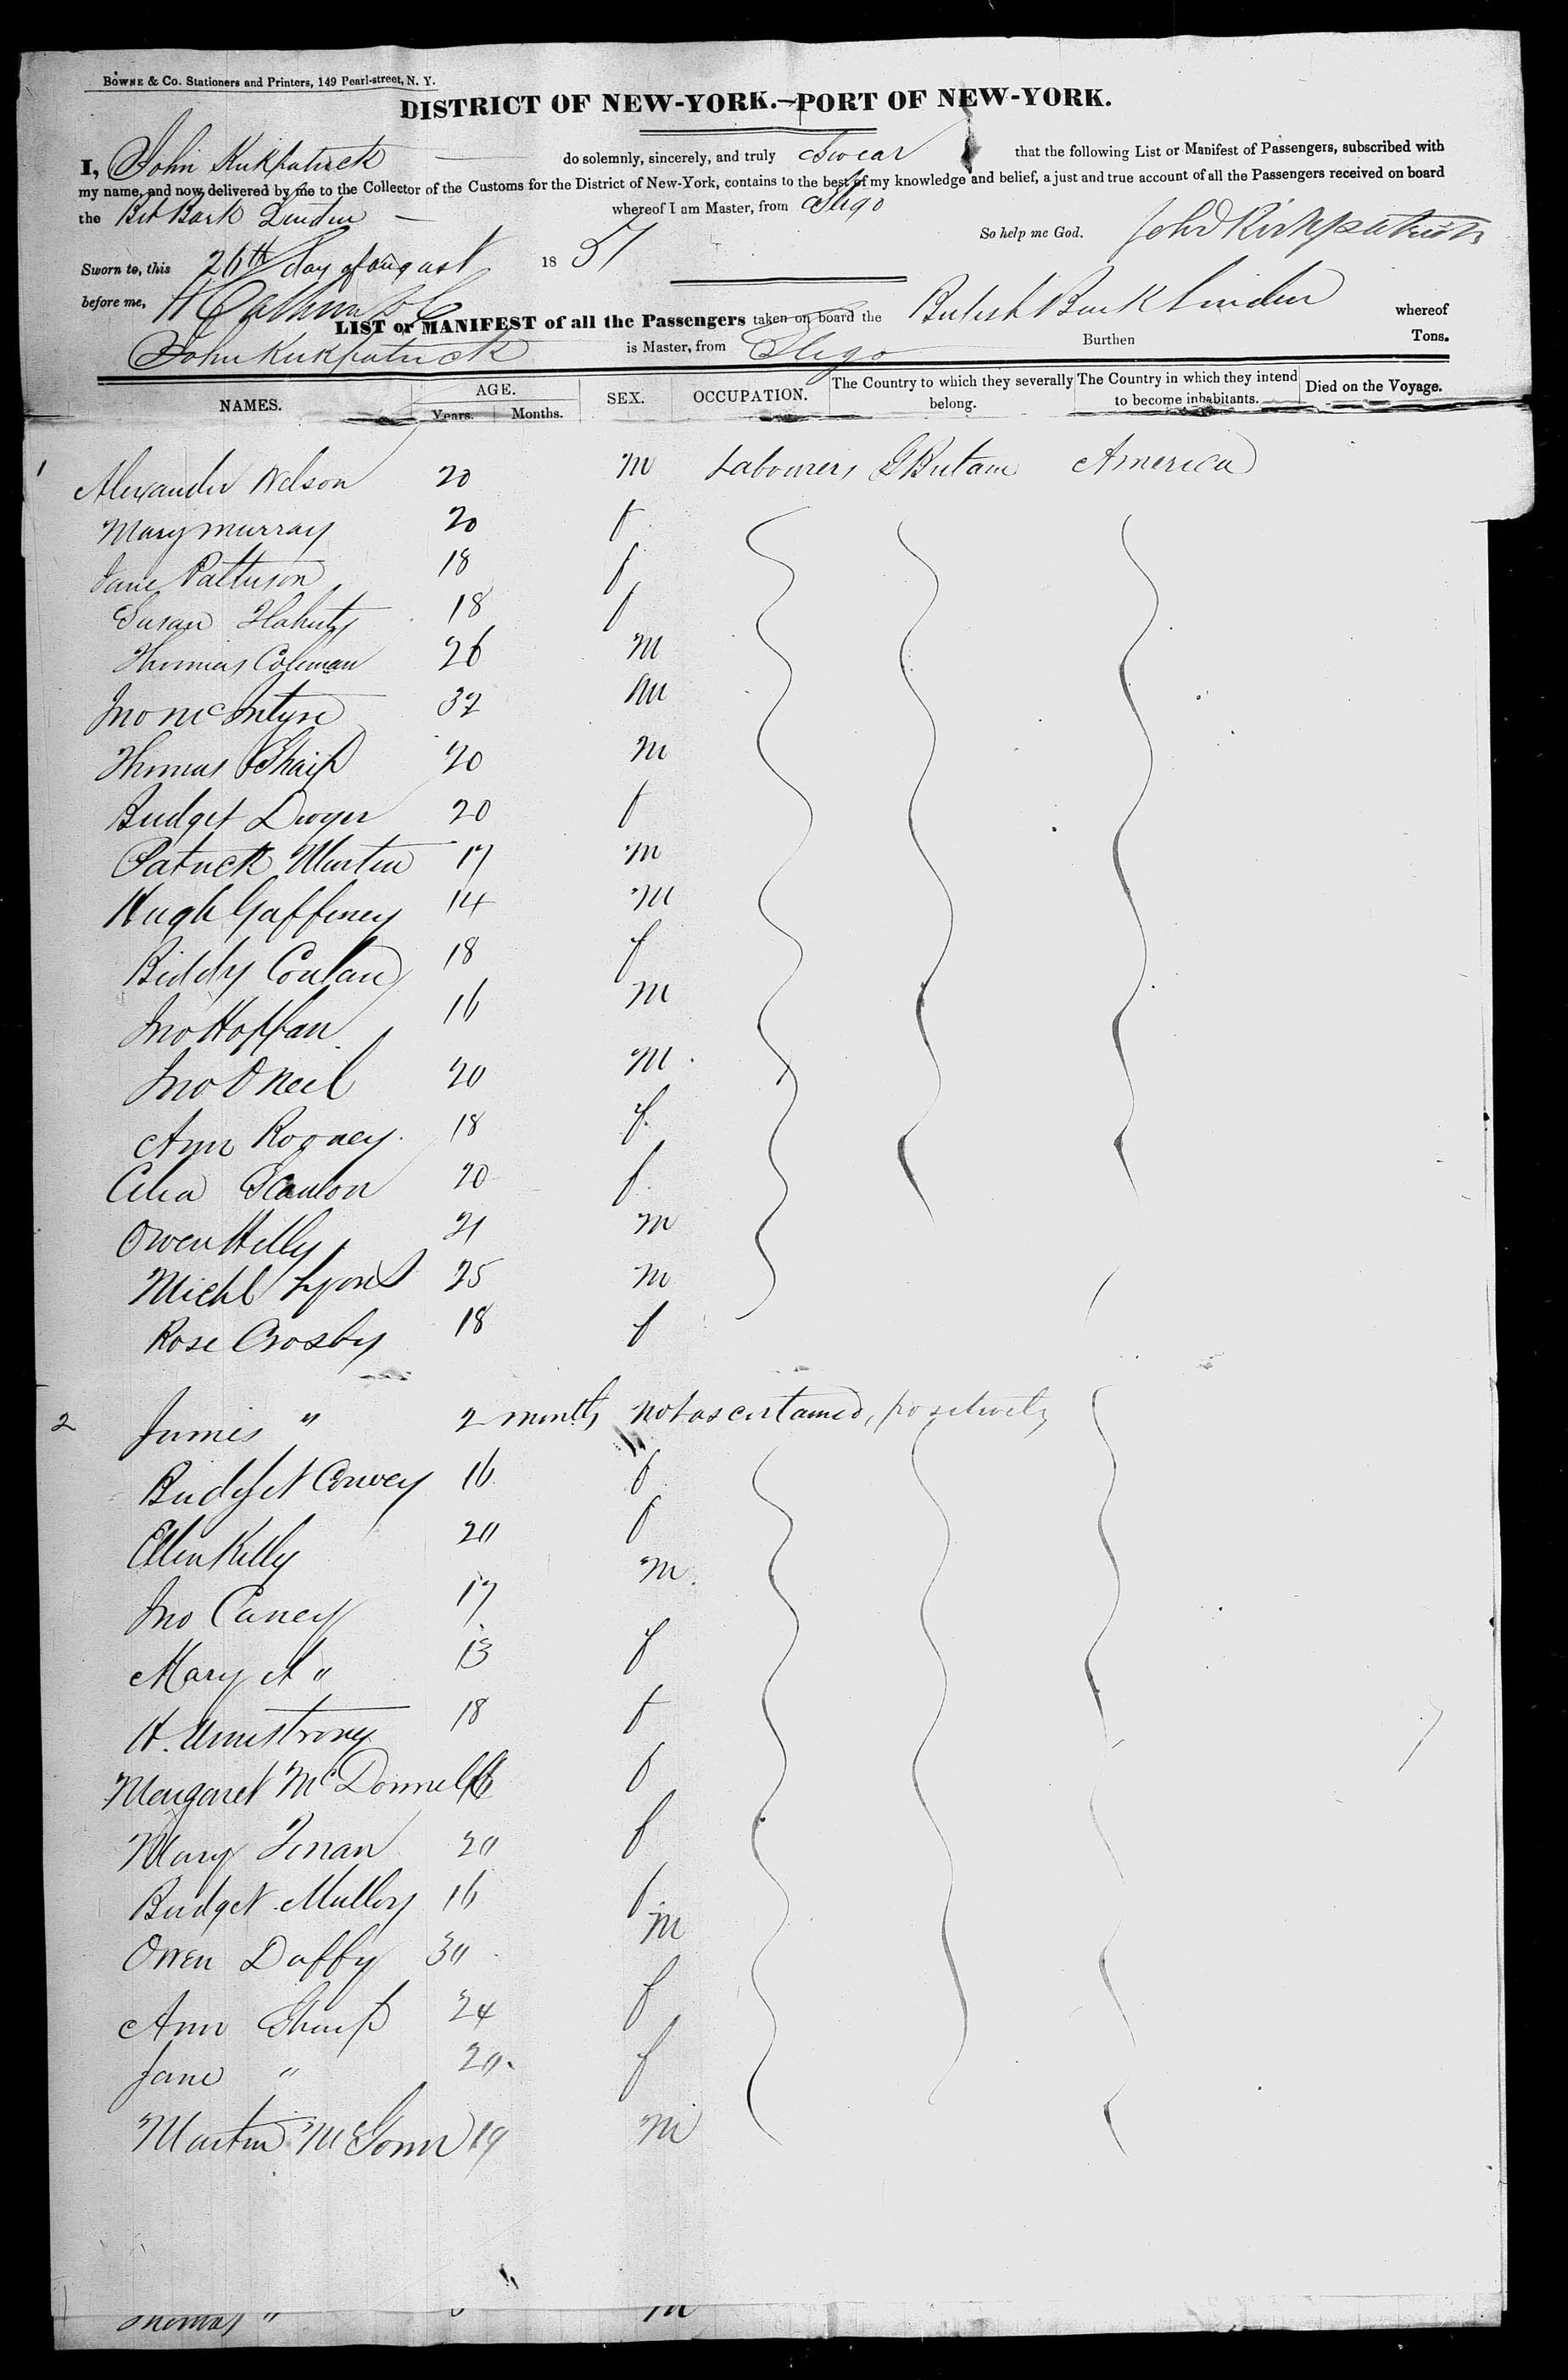 BOWNE & Co. Stationers and Printers, 149 Pearl-street, N. Y.
DISTRICT OF NEW-YORK.—PORT OF NEW-YORK.
I, John Kirkpatrick do solemnly, sincerely, and truly Swear that the following List or Manifest of Passengers, subscribed with
my name, and now delivered by me to the Collector of the Customs for the District of New-York, contains to the best of my knowledge and belief, a just and true account of all the Passengers received on board
the Bark Linden whereof I am Master, from Sligo
So help me God. John Kirkpatrick
Sworn to, this 26th day of august 1851
before me,
LIST or MANIFEST of all the Passengers taken on board the British Bark Linden whereof
John Kirkpatrick is Master, from Sligo Burthen Tons.
NAMES. AGE. SEX. OCCUPATION. The Country to which they severally belong. The Country in which they intend to become inhabitants. Died on the Voyage.
Years. Months.
1 Alexander Nelson 20 M Labourers G Britain America
Mary Murray 20 f
Jane Patterson 18 f
Susan Flaherty 18 f
Thomas Coleman 26 M
Jno McIntyre 32 M
Thomas Sharp 20 M
Bridget Dwyer 20 f
Patrick Martin 17 M
Hugh Gaffeney 14 M
Biddy Conlan 18 f
Jno 16 M
Jno O Neil 20 M
Ann Rooney 18 f
Celia Scanlon 20 f
Owen 21 M
Michl Lyons 25 M
Rose Crosby 18 f
2 James " 2 months not ascertained, positively
Bridget Convey 16 f
Ellen Kelly 20 f
Jno Caney 17 M
Mary A " 13 f
H. Armstrong 18 f
Margaret McDonnell 16 f
Mary 20 f
Bridget Mulloy 16 f
Owen Duffy 30 M
Ann Sharp 24 f
Jane " 20 f
Martin McGowan 19 M
Thomas " M